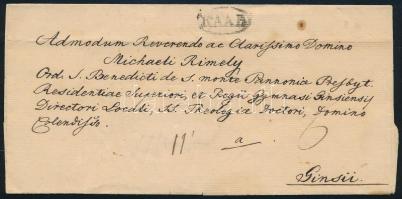 RAAB
Admodum Reverendo ac Clarissimo Domino
Michaeli Rimely
Ord. S. Benedicti de S. monte Pannonia Presbyt.
Residentiae Superiori, et Regii Gymnasi Ginsiensis
Directori Locali, SS. Theologiae Doctori, Domino
Colendissº
11'
a
6
Ginsii.